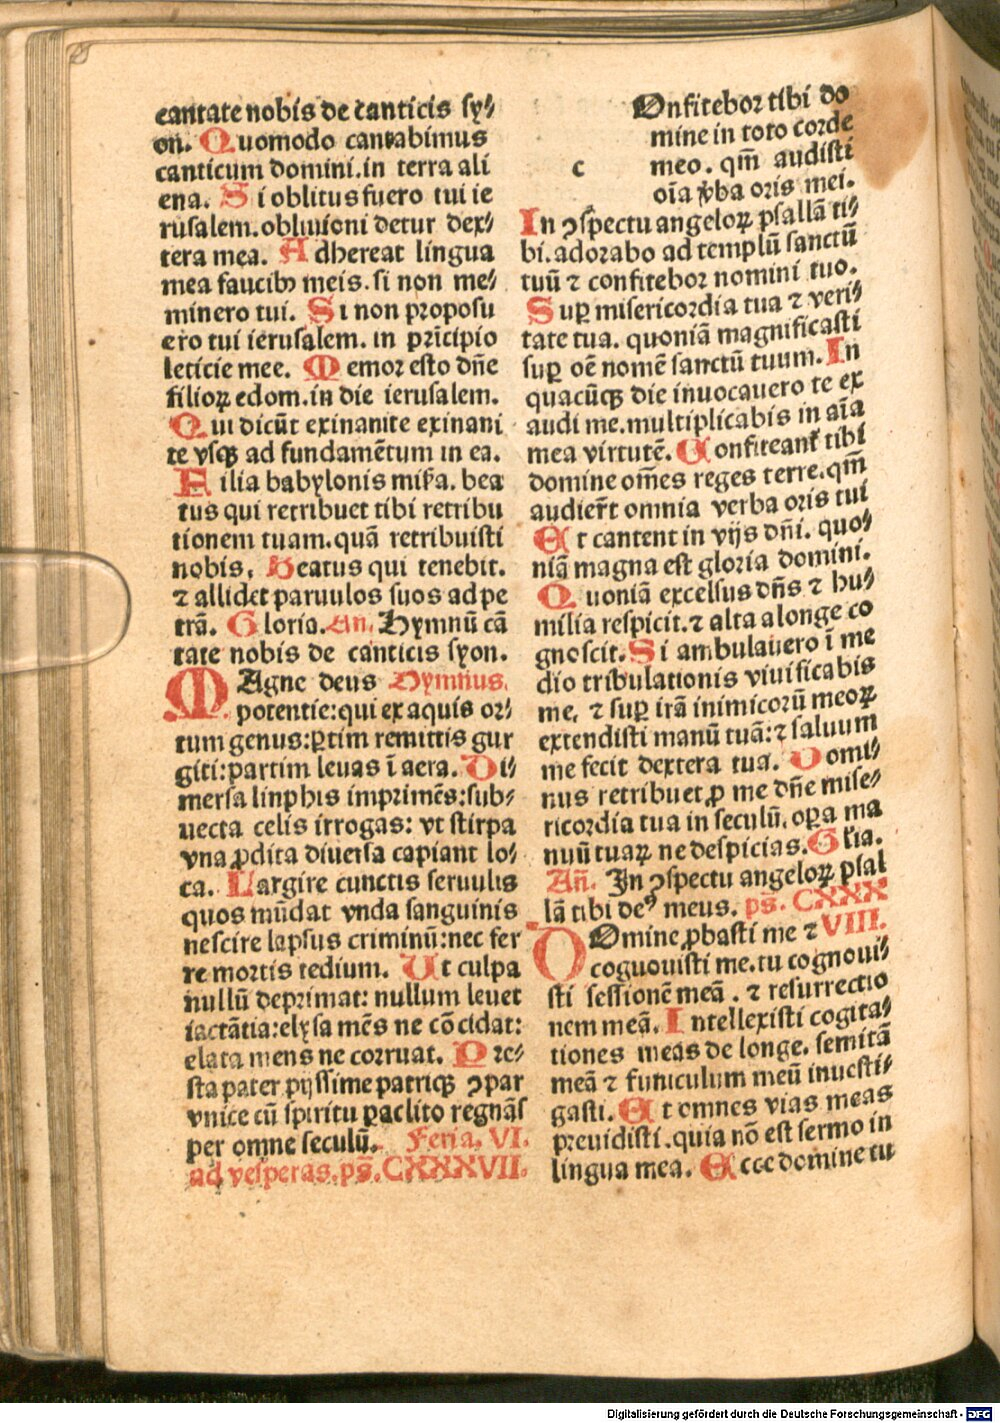 cantate nobis de canticis sy⸗
on. Quomodo cantabimus
canticum domini.in terra ali
ena. Si oblitus fuero tui ie
rusalem.obliuioni detur dex⸗
tera mea. Adhereat lingua
mea faucibꝰ meis.si non me⸗
minero tui. Si non proposu
ero tui ierusalem. in prīcipio
leticie mee. Memor esto dn̄e
filioꝝ edom.in die ierusalem.
Qui dicūt exinanite exinani
te vsqꝫ ad fundamētum in ea.
Filia babylonis mis̄a. bea
tus qui retribuet tibi retribu
tionem tuam.quā retribuisti
nobis. Beatus qui tenebit.
⁊ allidet paruulos suos ad pe
trā. Gloria. An. Hymnū cā
tate nobis de canticis syon.
MAgne deus Hymnus.
potentie:qui ex aquis or⸗
tum genus:ꝑtim remittis gur
giti:partim leuas ī aera. Di⸗
mersa linphis imprimēs:sub⸗
uecta celis irrogas: vt stirpa
vna ꝓdita diuersa capiant lo⸗
ca. Largire cunctis seruulis
quos mūdat vnda sanguinis
nescire lapsus criminū:nec fer
re mortis tedium. Ut culpa
nullū deprimat: nullum leuet
iactātia:elysa mēs ne cōcidat:
elata mens ne corruat. Pre⸗
sta pater pijssime patriqꝫ ꝯpar
vnice cū spiritu paclito regnās
per omne seculū. Feria. VI.
ad vesperas.ps̄.CXXXVII.
c
Onfitebor tibi do
mine in toto corde
meo. qm̄ audisti
oīa v̄ba oris mei.
In ꝯspectu angeloꝝ psallā ti⸗
bi.adorabo ad templū sanctū
tuū ⁊ confitebor nomini tuo.
Suꝑ misericordia tua ⁊ veri⸗
tate tua. quoniā magnificasti
suꝑ oē nomē sanctū tuum. In
quacūqꝫ die inuocauero te ex
audi me.multiplicabis in aīa
mea virtutē. Confiteant̄ tibi
domine om̄es reges terre.qm̄
audier̄t omnia verba oris tui
Et cantent in vijs dn̄i. quo⸗
niā magna est gloria domini.
Quoniā excelsus dn̄s ⁊ hu⸗
milia respicit.⁊ alta a longe co
gnoscit. Si ambulauero ī me
dio tribulationis viuificabis
me, ⁊ suꝑ irā inimicorū meoꝝ
extendisti manū tuā:⁊ saluum
me fecit dextera tua. Domi⸗
nus retribuet ꝓ me dn̄e mise⸗
ricordia tua in seculū.oꝑa ma
nuū tuaꝝ ne despicias. Gl̄ia.
Añ. In ꝯspectu angeloꝝ psal
lā tibi deꝰ meus. ps̄. CXXX
DOmine ꝓbasti me ⁊ VIII.
coguouisti me.tu cognoui⸗
sti sessionē meā . ⁊ resurrectio
nem meā. Intellexisti cogita⸗
tiones meas de longe. semitā
meā ⁊ funiculum meū inuesti⸗
gasti. Et omnes vias meas
preuidisti .quia nō est sermo in
lingua mea. Ecce domine tu
Digitalisierung gefördert durch die Deutsche Forschungsgemeinschaft - DFG